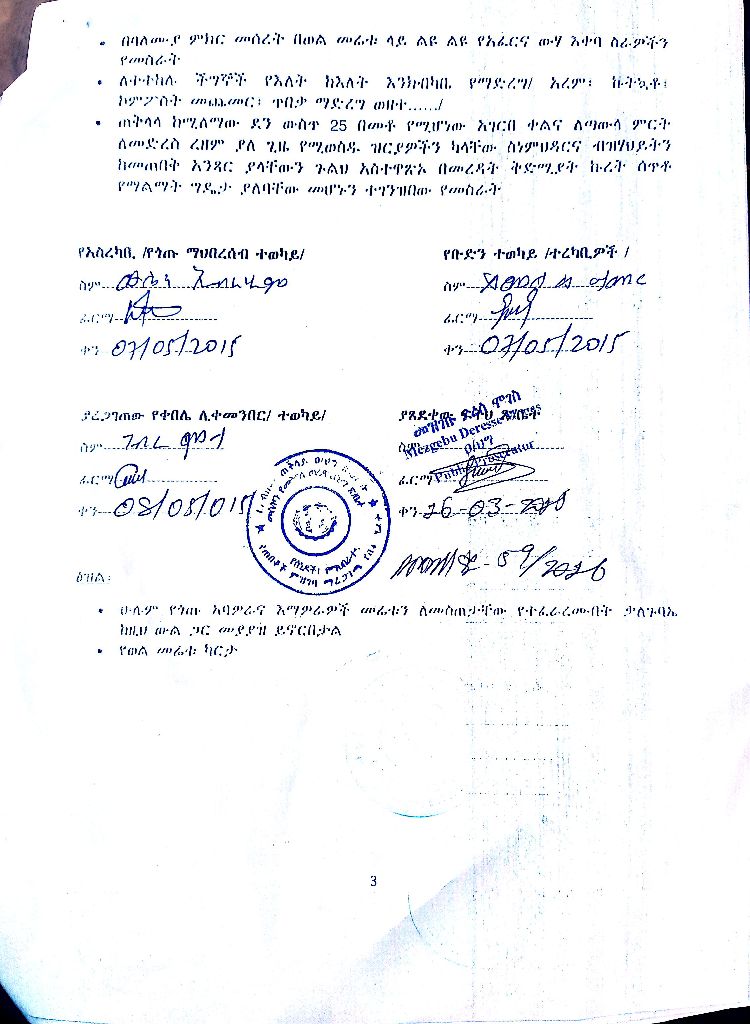 በባለሙያ ምክር መሰረት በወል መሬቱ ላይ ልዩ ልዩ የአፈርና ውሃ እቀባ ስራዎችን
የመስራት
ለተተከሉ ችግኞች የእለት ከእለት እንክብካቤ የማድረግ/ አረም፣ ኩትኳቶ፣
ኮምፖስት መጨመር፣ ጥበቃ ማድረግ ወዘተ....../
ጠቅላላ ከሚለማው ደን ውስጥ 25 በመቶ የሚሆነው አገር በቀልና ለጣውላ ምርት
ለመድረስ ረዘም ያለ ጊዜ የሚወስዱ ዝርያዎችን ካላቸው ስነምህዳርና ብዝሃህይትን
ከመጠበቅ አንጻር ያላቸውን ጉልህ አስተዋጽኦ በመረዳት ቅድሚያት ኩረት ሰጥቶ
የማልማት ግዴታ ያለባቸው መሆኑን ተገንዝበው የመስራት
የአስረካቢ /የጎጡ ማህበረሰብ ተወካይ/ የቡድን ተወካይ /ተረካቢዎች /
ስም ስም
ፊርማ ፊርማ
ቀን 07/05/2015 ቀን 07/05/2015
ያረጋገጠው የቀበሌ ሊቀመንበር/ ተወካይ/ ያጸደቀው
ስም ስም
Mezgebu Deresse
ፊርማ ፊርማ Public Prosecutor
ቀን 08/05/015 ቀን 26-03-2016
59/2016
ዕዝል፡
ሁሉም የጎጡ አባዎራና እማዎራዎች መሬቱን ለመስጠታቸው የተፈራረሙበት ቃለጉባኤ
ከዚህ ውል ጋር መያያዝ ይኖርበታል
የወል መሬቱ ካርታ
3